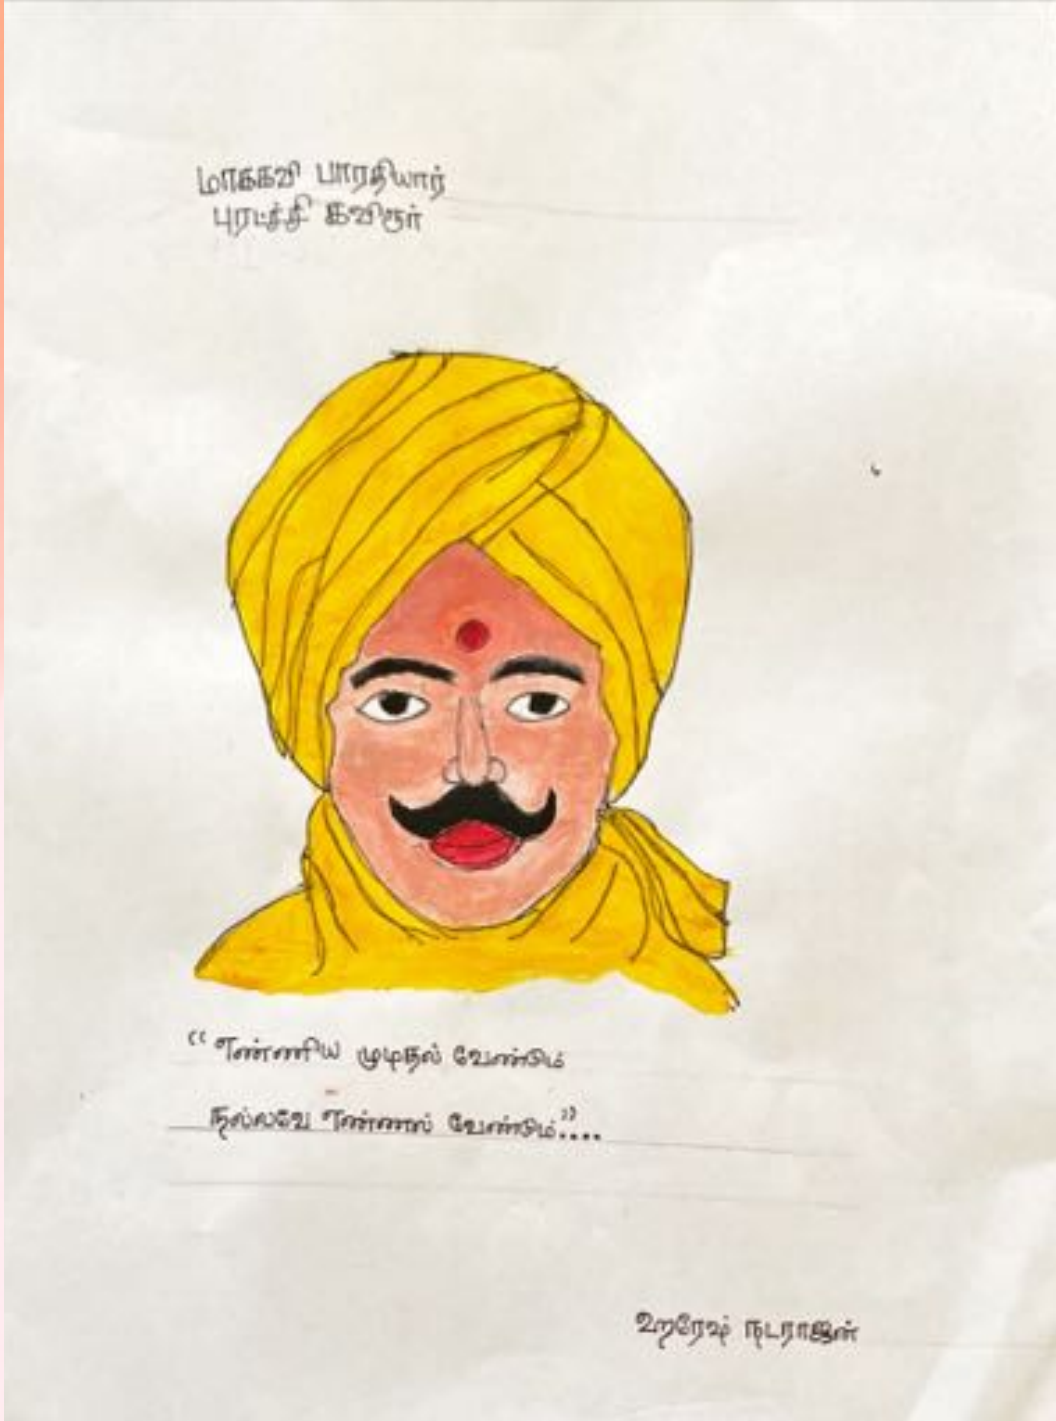 மாககவி பாரதியார்
புரட்ச்சி கவிஞர்
“எண்ணிய முடிதல் வேண்டும்
நல்லவே எண்ணல் வேண்டும்”....
ஹரேஷ் நடராஜன்